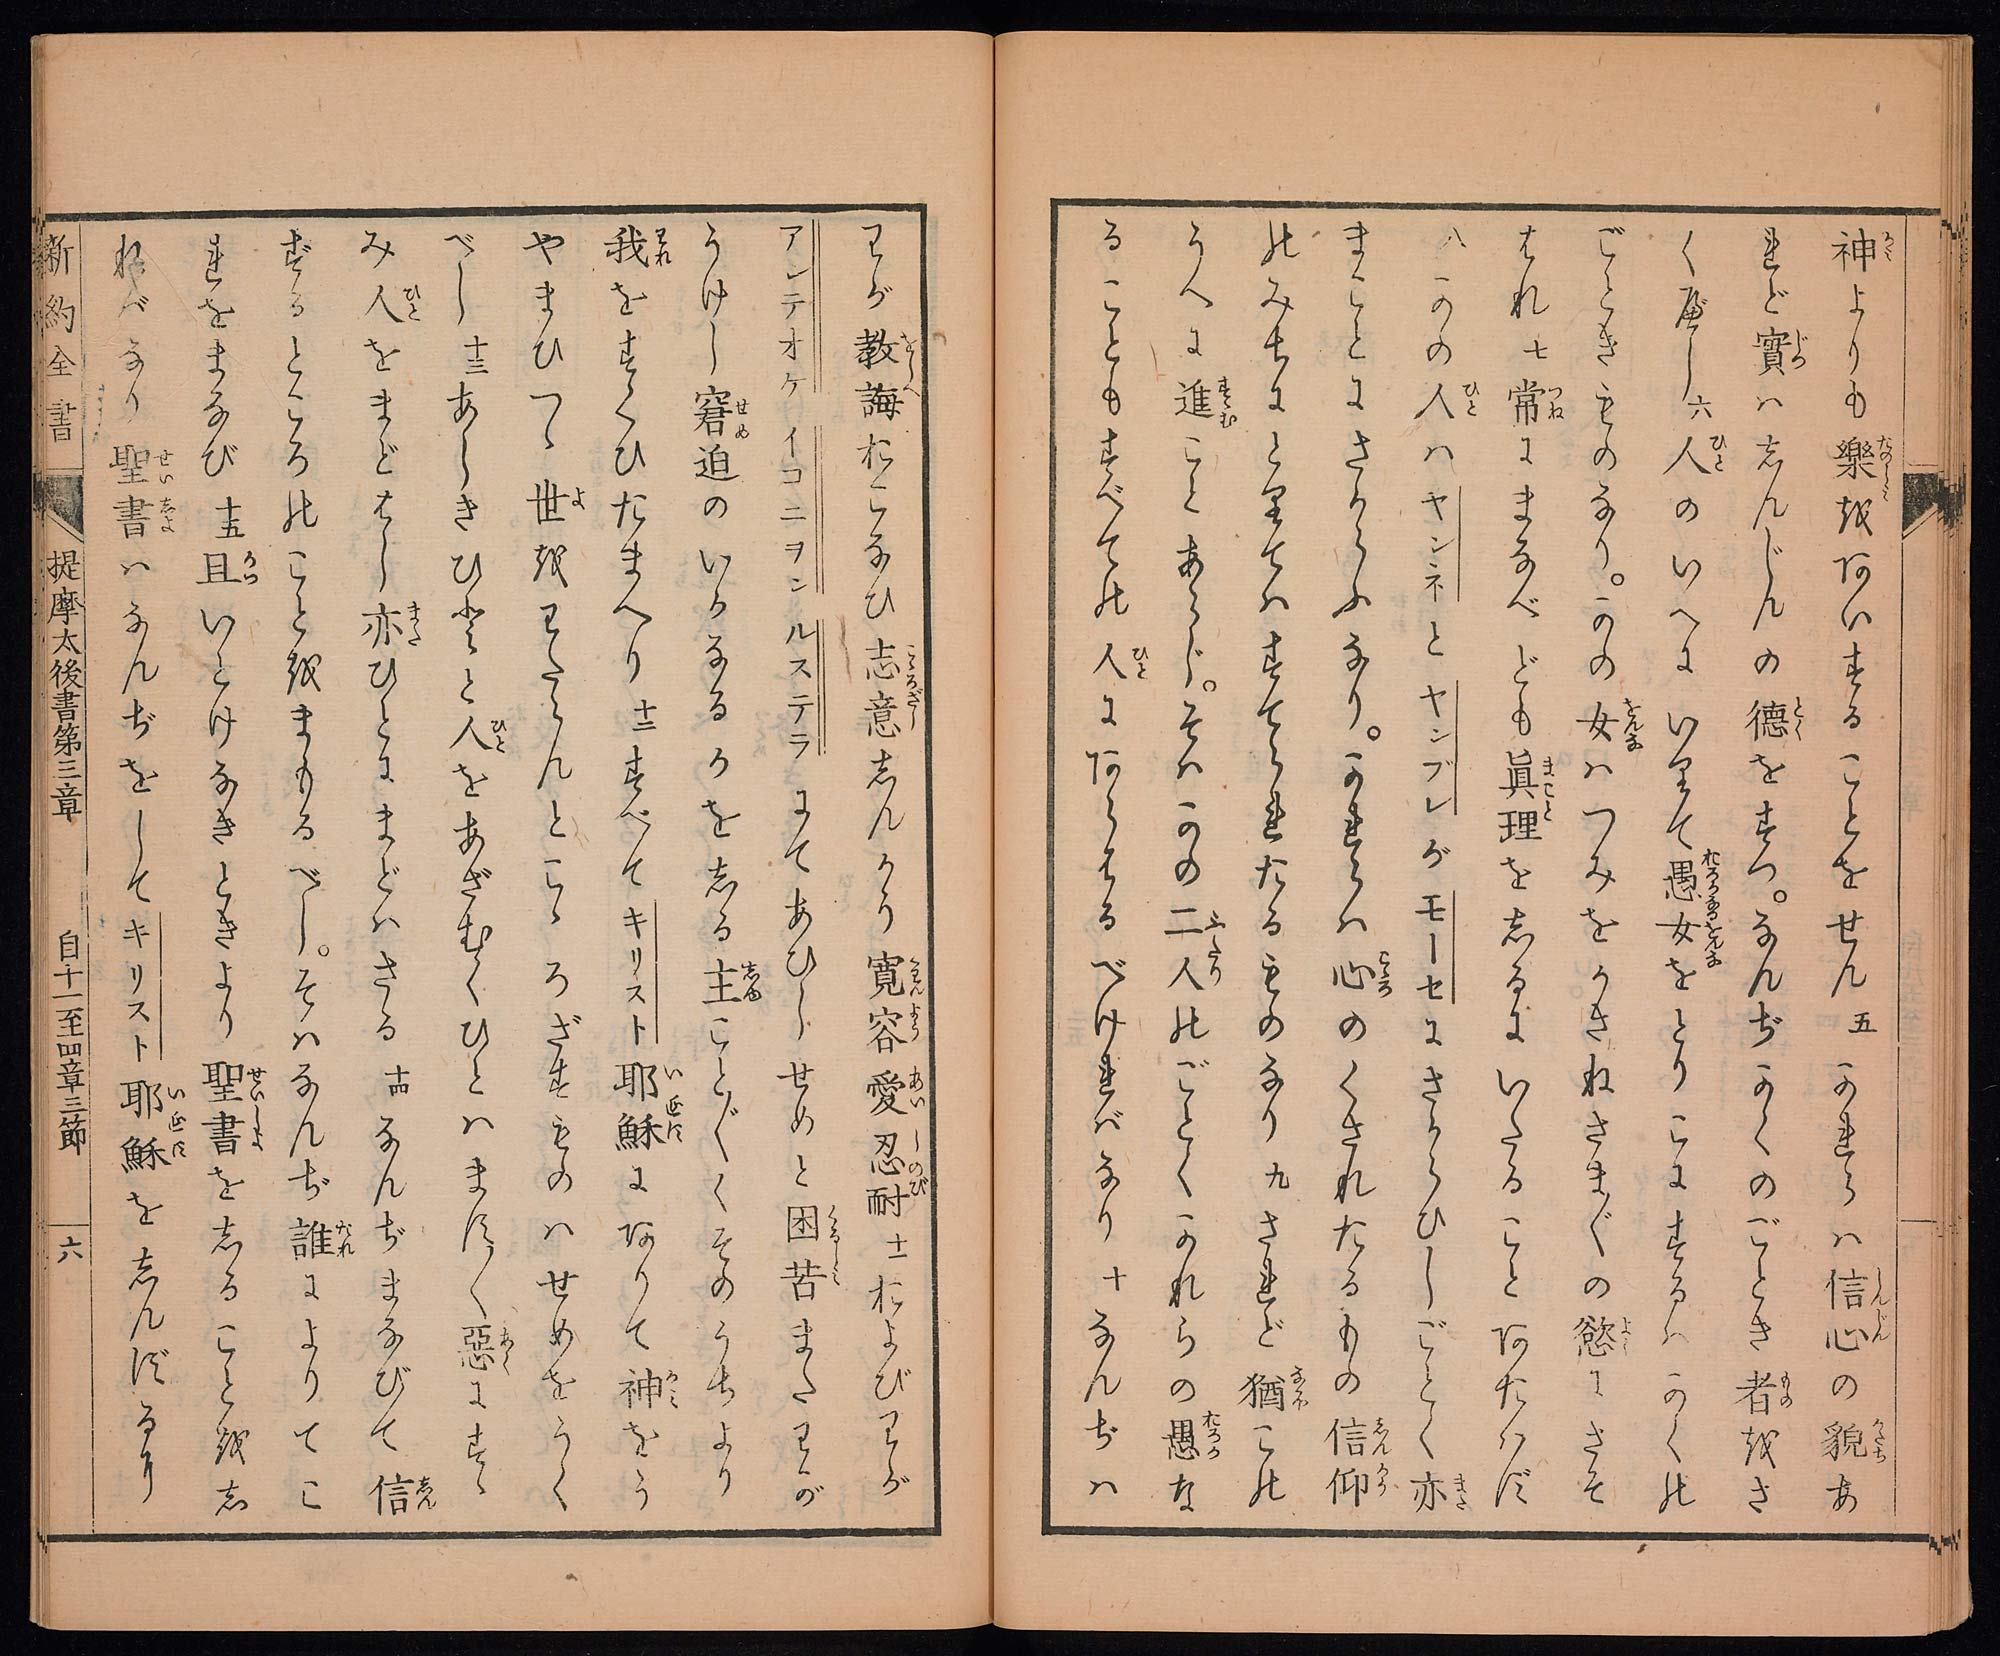 神よりも樂をあいすることをせん 五 かれらハ信心の貌あ
れど實ハしんじんの德をすつ。なんぢかくのごとき者をさ
く べし 六 人のいへにいりて愚女をとりこにするハかくの
ごときものなり。かの女ハつみをかさねさまざまの慾にさそ
はれ 七 常にまなべども眞理をしるにいたることあたハず
八 かの人ハヤンネとヤンブレがモーセにさからひしごとく亦
まことにさからふなり。かれらハ心のくされたるもの信仰
のみちにとりてハすてられたるものなり 九 されど猶この
うへに進ことあらじ。そハかの二人のごとくかれらの愚な
ることもすべての人にあらはるべければなり 十 なんぢハ
わが教誨おこなひ志意しんかう寛容愛忍耐 十一 およびわが
アンテオケイコニヲンルステラにてあひしせめと困苦またわが
うけし窘迫のいかなるかをしる主ことごとくそのうちより
我をすくひたまへり 十二 すべてキリスト耶穌にありて神をう
やまひつゝ世をわたらんとこゝろざすものハせめをうく
べし 十三 あしきひとと人をあざむくひとハますます惡にすゝ
み人をまどはし亦ひとにまどハさる 十四 なんぢまなびて信
ずるところのことをまもるべし。そハなんぢ誰によりてこ
れをまなび 十五 且いとけなきときより聖書をしることをし
ればなり聖書ハなんぢをしてキリスト耶穌をしんずるり
新約全書 提摩太後書第三章 自十一至四章三節 六